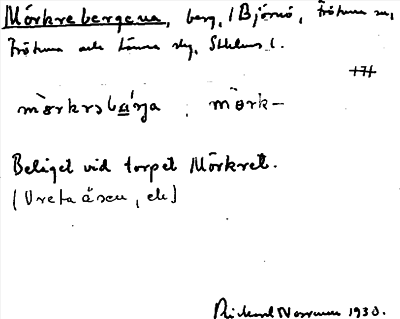 Mörkrebergena, berg, i Björnö, Frötuna sn,
Frötuna och Länna skg, Sthlms l.
mòrkrəbærja mòrk-
Beläget vid torpet Mörkret.
(Vreta åsen, ek)
Rickard Norrman 1930.